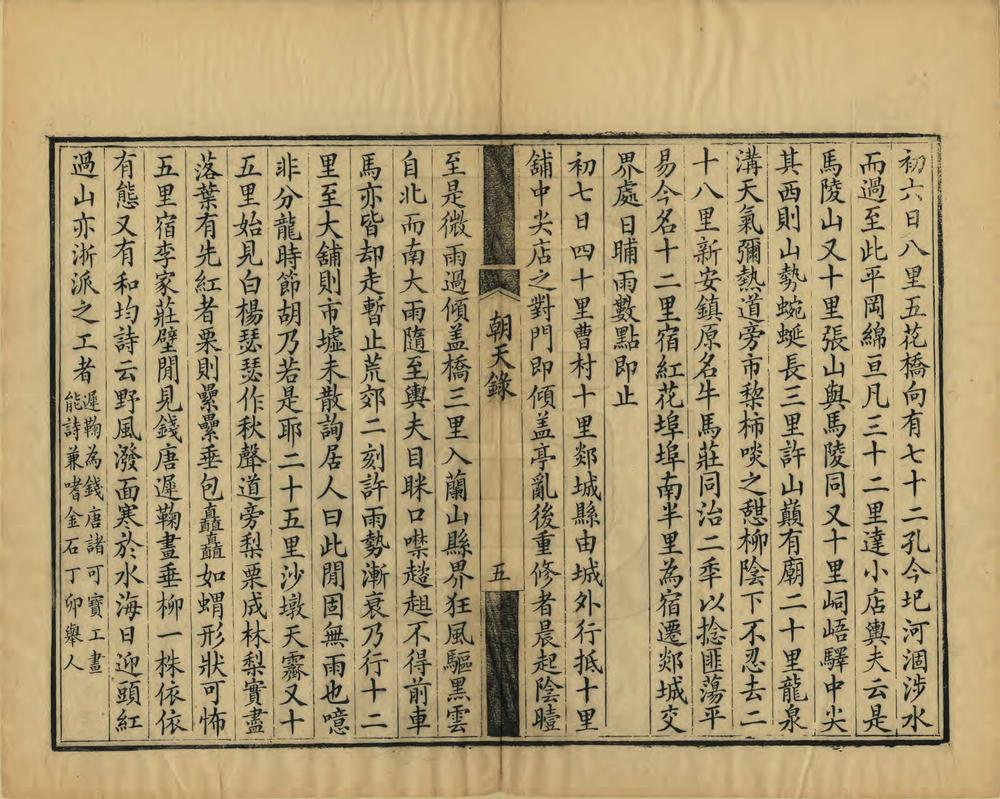 初六日八里五花橋向有七十二孔今圮河涸涉水
而過至此平岡綿亘凡三十二里達小店輿夫云是
馬陵山又十里張山與馬陵同又十里峒峿驛中尖
其西則山勢蜿蜒長三里許山巔有廟二十里龍泉
溝天氣彌熱道旁市棃柿啖之憇柳陰下不忍去二
十八里新安鎮原名牛馬莊同治二秊以捻匪蕩平
易今名十二里宿紅花埠埠南半里為宿遷郯城交
界處日晡雨數點即止
初七日四十里曹村十里郯城縣由城外行抵十里
舖中尖店之對門即傾盖亭亂後重修者晨起陰曀
朝天錄
五
至是微雨過傾盖橋三里入蘭山縣界狂風驅黑雲
自北而南大雨隨至輿夫目眯口噤趑趄不得前車
馬亦皆却走暫止荒郊二刻許雨勢漸衰乃行十二
里至大舖則市墟未散詢居人曰此閒固無雨也噫
非分龍時節胡乃若是耶二十五里沙墩天霽又十
五里始見白楊瑟瑟作秋聲道旁梨栗成林梨實盡
落葉有先紅者栗則纍纍垂包矗矗如蝟形狀可怖
五里宿李家莊壁閒見錢唐遲鞠畫垂柳一株依依
有態又有和均詩云野風潑面寒於水海日迎頭紅
過山亦浙派之工者遲鞠為錢唐諸可寶工畫
能詩兼嗜金石丁卯舉人